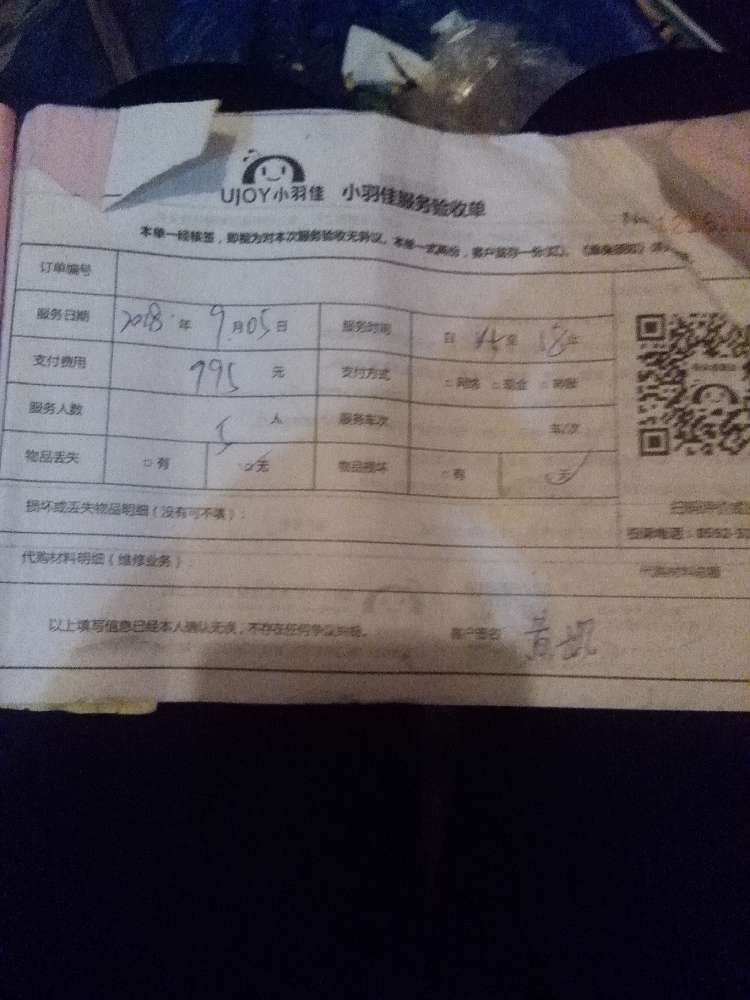 UJOY小羽佳 小羽佳服务验收单
本单一经核签，即视为对本次服务验收无异议。本单一式两份，客户留存一份
订单编号
服务日期 2018年 9月05日 服务时间 自 至 18止
支付费用 795 元 支付方式 □网络 □现金 □转账
服务人数 5 人 服务车次 车/次
物品丢失 □有 □无 物品损坏 □有 □无
损坏或丢失物品明细（没有可不填）：
代购材料明细（维修业务） 代购材料总额
以上填写信息已经本人确认无误，不存在任何争议纠纷。 客户签名